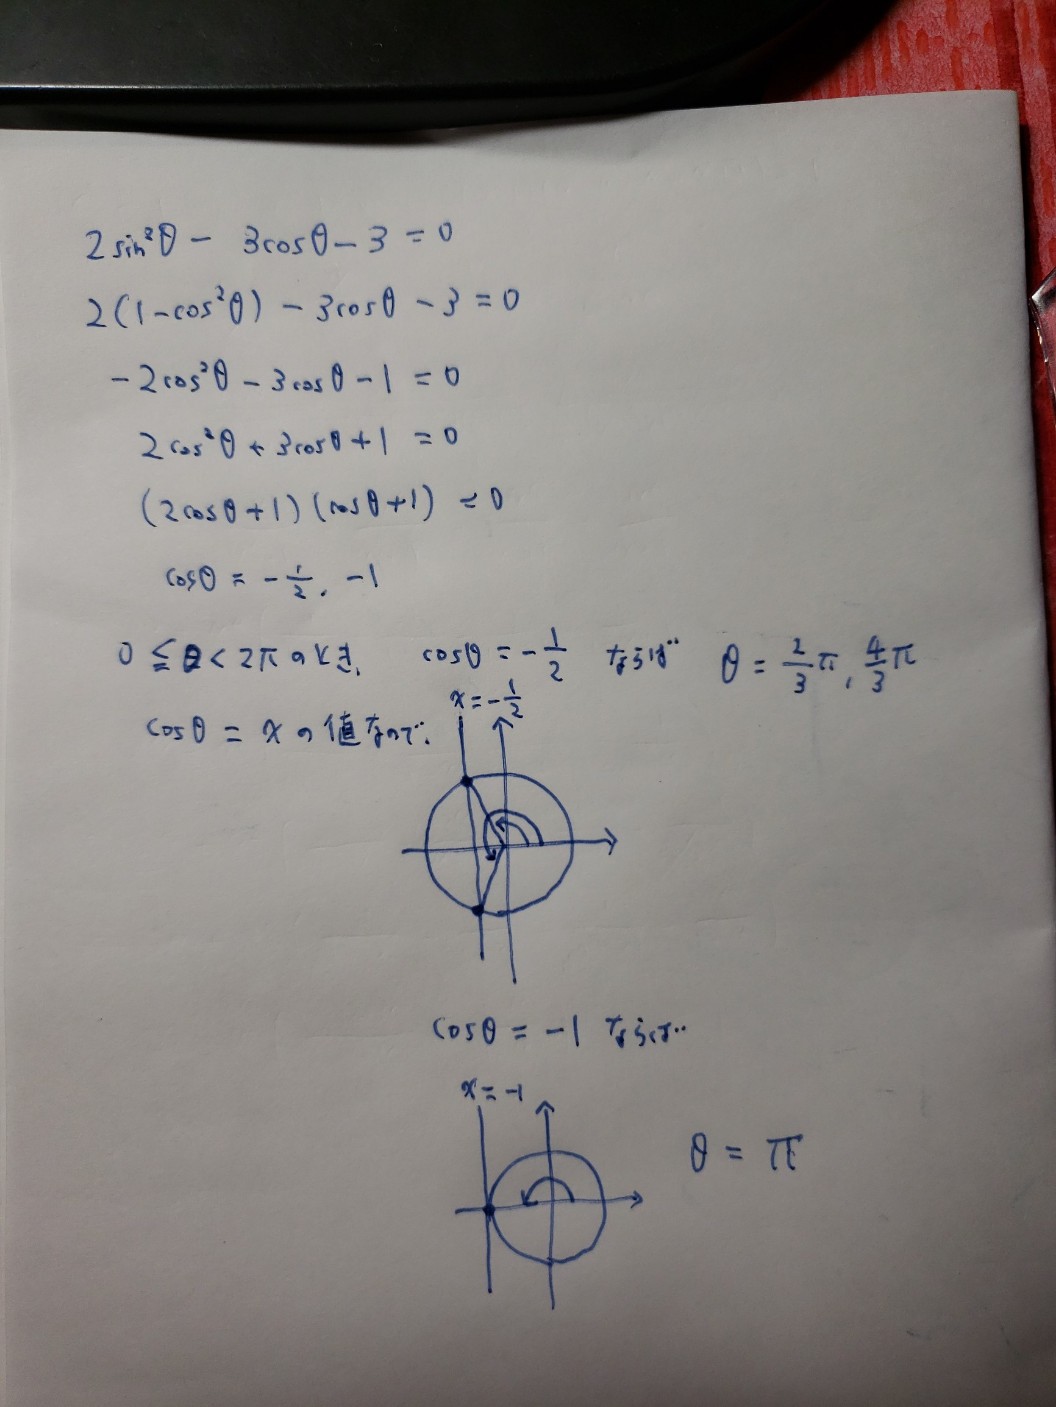 2sin²θ - 3cosθ - 3 = 0
2(1-cos²θ) - 3cosθ - 3 = 0
-2cos²θ - 3cosθ - 1 = 0
2cos²θ + 3cosθ + 1 = 0
(2cosθ+1)(cosθ+1) = 0
cosθ = -1/2, -1
0 ≦ θ < 2π のとき、 cosθ = -1/2 ならば θ = 2/3π, 4/3π
cosθ = xの値なので、
x = -1/2
cosθ = -1 ならば
x = -1
θ = π